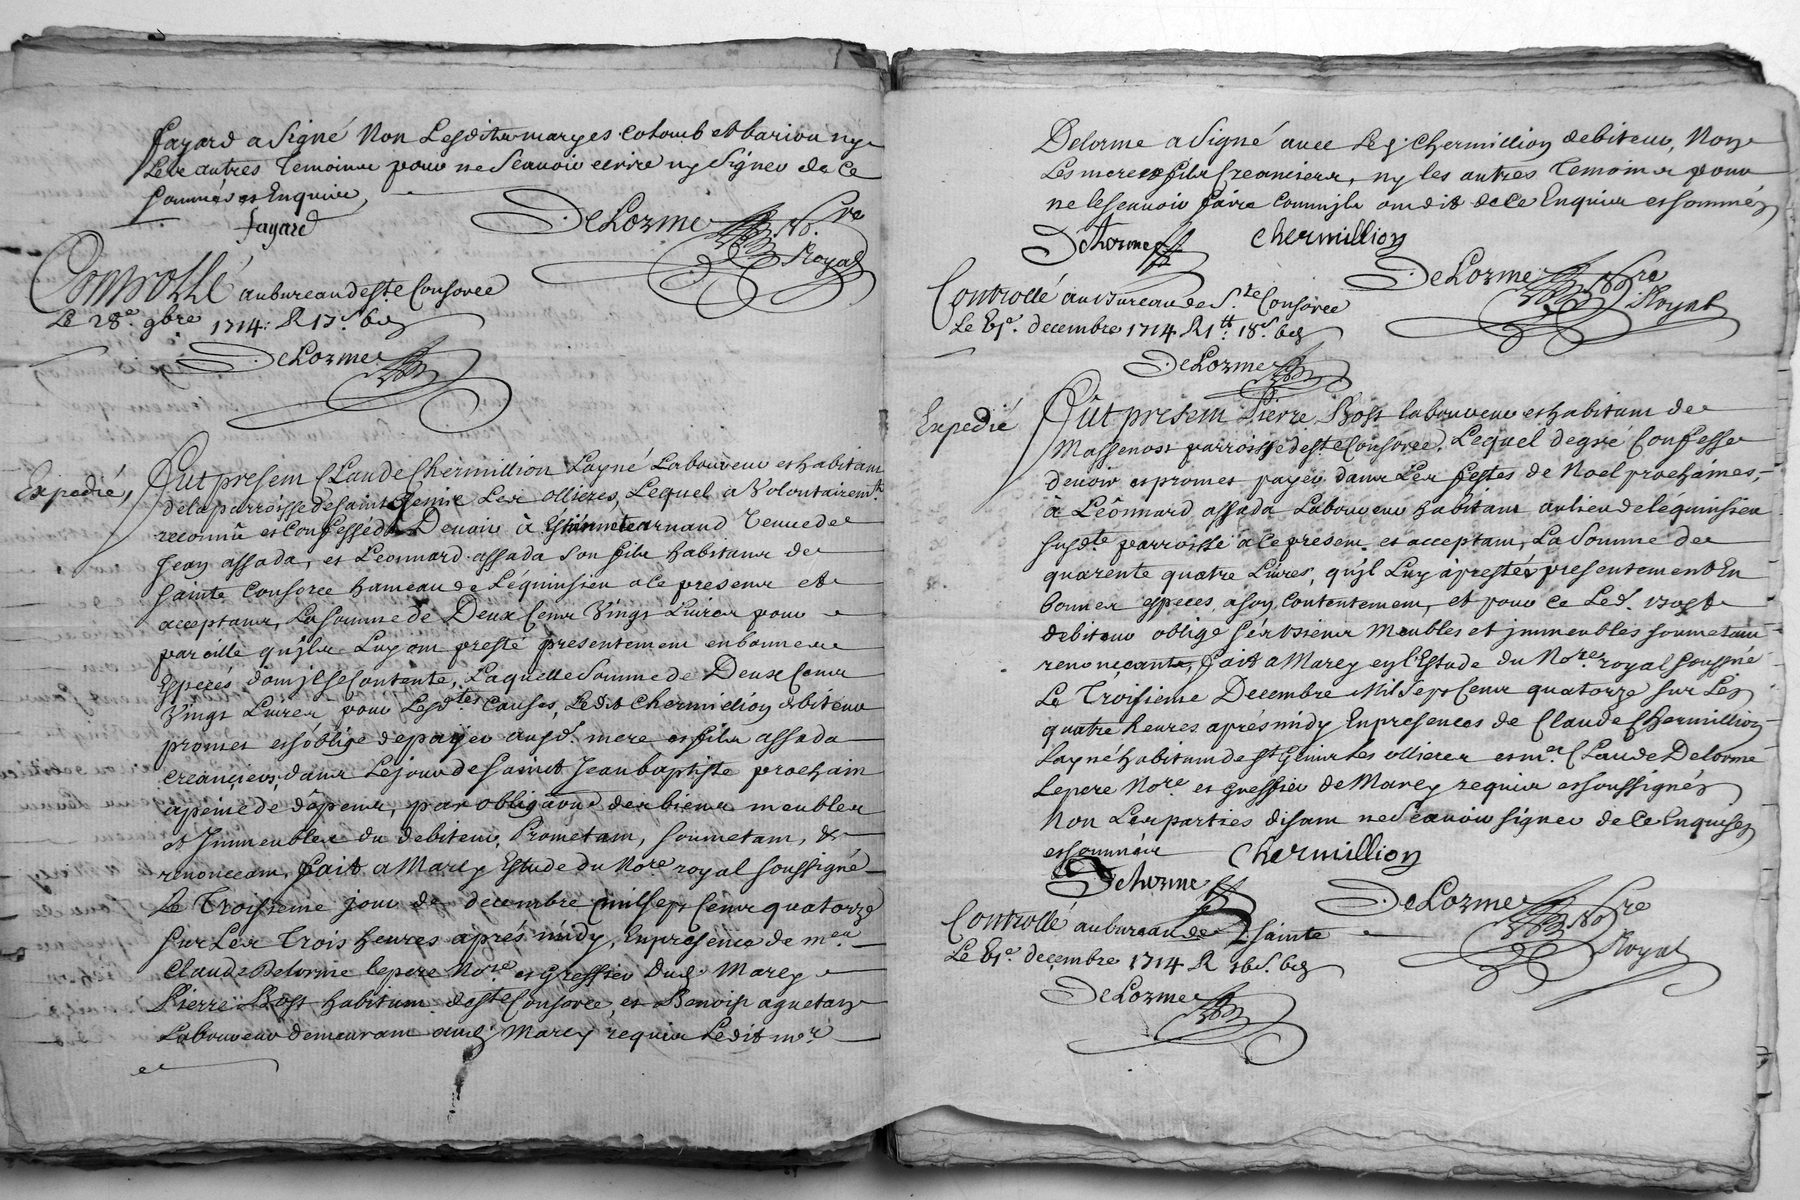 fayard a signé Non Lesdits maryes colomb et bariou ny
Les autres Temoins pour ne scavoir ecrire ny signer de ce
sommés et Enquis
fayard
DeLorme No.re
Royal
Controllé au bureau de ste Consorce
Le 28e. 9bre 1714. R 17s. 6d
DeLorme
Expedié,
Fut present Claude Chermillion Layné Laboureur et habitant
de la parroisse de saint Genis Les ollieres, Lequel a Volontairemt
reconnu et Confessé Devoir à arnaud veuve de
Jean assada, et Léonnard assada son fils habitans de
sainte Consorce hameau de Léquinsieu a ce presens et
acceptans, La somme de Deux Cens Vingt Livres pour
pareille qu'jls Luy ont presté presentement en bonnes
Especes dont jl se Contente, Laquelle somme de Deux Cens
Vingt Livres pour Lesdtes Causes, Ledit Chermillion debiteur
promet et s'oblige de payer ausd. mere et fils assada
creanciers, dans Le jour de saint Jean baptiste prochain
a peine de depens, par obligaon des biens meubles
et Jmmeubles du debiteur, Prometant, soumetant, &
renoncant, fait a Marcy Estude du No.re royal soussigné
Le Troisieme jour de decembre mil sept Cens quatorze
sur Les Trois heures aprés midy, En presence de me
Claude Delorme le pere No.re et greffier dud. Marcy
Pierre Bost habitant de ste Consorce, et Benoist aguetan
Laboureur demeurant aud. Marcy requis Ledit mr
Delorme a signé avec Led. Chermillion debiteur, Non
Les mere et fils Creanciers, ny les autres Temoins pour
ne le scavoir faire Comme jls ont dit de ce Enquis et sommés
Delorme Chermillion
DeLorme No.re
Royal
Controllé au Bureau de S.te Consorce
Le 6e. decembre 1714 R 1tt 18s. 6d
DeLorme
Expedié
Fût present Pierre Bost laboureur et habitant de
Massenost parroisse de ste Consorce, Lequel de gré Confesse
devoir et promet payer dans Les festes de Noel prochaines,
à Léonnard assada Laboureur habitant au lieu de léquinsieu
susdte parroisse a ce present et acceptant, La somme de
quarente quatre Livres, qu'jl Luy a presté presentement En
bonnes especes a son Contentement, et pour ce Led. Bost
debiteur oblige ses biens Meubles et jmmeubles soumetant
renoncante, fait a Marcy en l'Estude du No.re royal soussigné
Le Troisieme Decembre Mil sept Cens quatorze sur Les
quatre heures aprés midy En presences de Claude Chermillion
Layné habitant de st Genis les ollieres et mr. Claude Delorme
Le pere No.re et greffier de Marcy requis et soussignés
Non Les parties disant ne scavoir signer de ce Enquises
et sommées Chermillion
Delorme
DeLorme No.re
Royal
Controllé au bureau de sainte
Le 6e. decembre 1714 R 16s. 6d
DeLorme